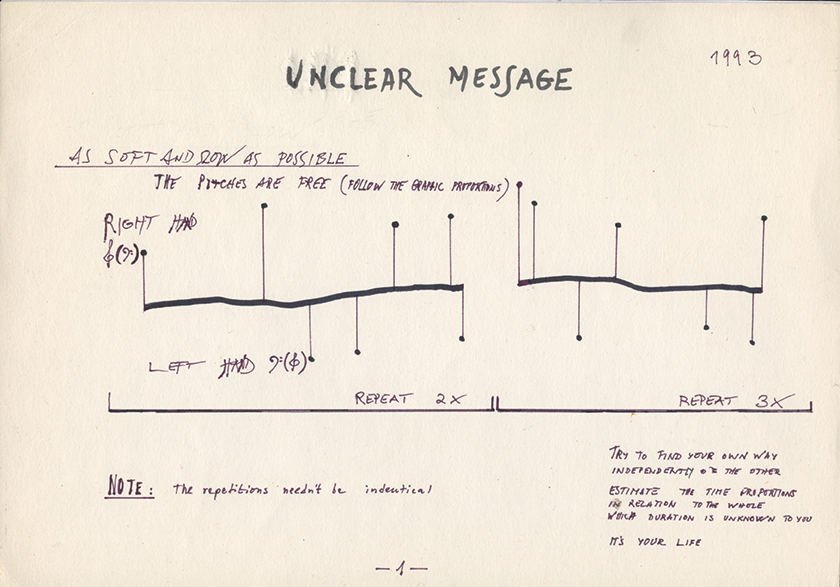 1993
UNCLEAR MESSAGE
AS SOFT AND SLOW AS POSSIBLE
THE PITCHES ARE FREE (FOLLOW THE GRAPHIC PROPORTIONS)
RIGHT HAND
LEFT HAND
REPEAT 2X
REPEAT 3X
NOTE: The repetitions needn't be indentical
TRY TO FIND YOUR OWN WAY
INDEPENDENTLY OF THE OTHER
ESTIMATE THE TIME PROPORTIONS
IN RELATION TO THE WHOLE
WHICH DURATION IS UNKNOWN TO YOU
IT'S YOUR LIFE
—1—